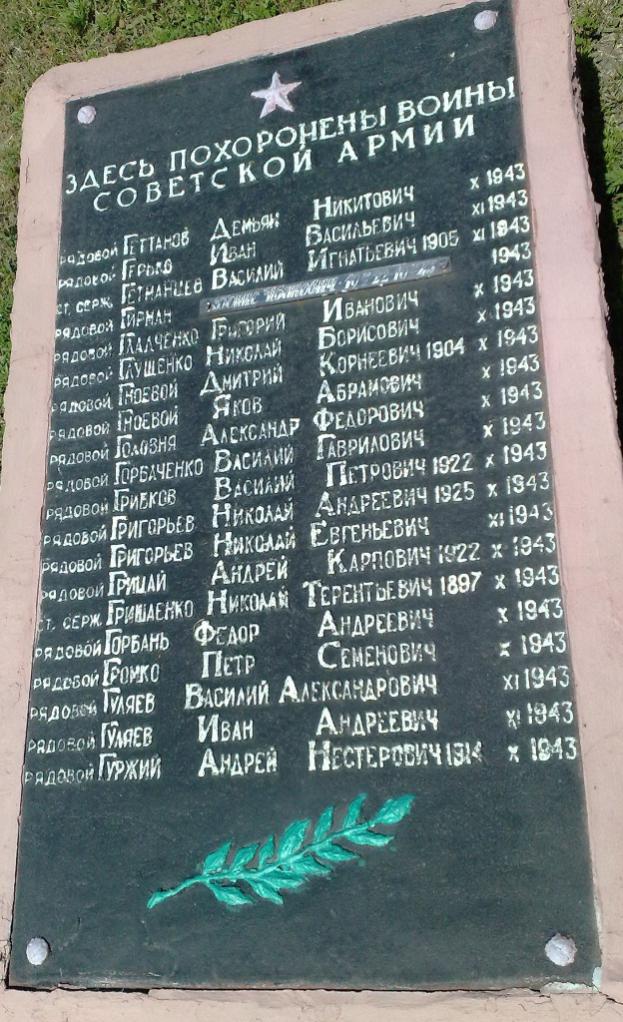 ЗДЕСЬ ПОХОРОНЕНЫ ВОИНЫ
СОВЕТСКОЙ АРМИИ
РЯДОВОЙ ГЕТТАНОВ ДЕМЬЯН НИКИТОВИЧ X 1943
РЯДОВОЙ ГЕРЬКО ИВАН ВАСИЛЬЕВИЧ XI 1943
СТ. СЕРЖ. ГЕТМАНЦЕВ ВАСИЛИЙ ИГНАТЬЕВИЧ 1905 XI 1943
РЯДОВОЙ ГИРМАН 1943
РЯДОВОЙ ГЛАДЧЕНКО ГРИГОРИЙ ИВАНОВИЧ X 1943
РЯДОВОЙ ГЛУЩЕНКО НИКОЛАЙ БОРИСОВИЧ X 1943
РЯДОВОЙ ГНОЕВОЙ ДМИТРИЙ КОРНЕЕВИЧ 1904 X 1943
РЯДОВОЙ ГНОЕВОЙ ЯКОВ АБРАМОВИЧ X 1943
РЯДОВОЙ ГОЛОВНЯ АЛЕКСАНДР ФЕДОРОВИЧ X 1943
РЯДОВОЙ ГОРБАЧЕНКО ВАСИЛИЙ ГАВРИЛОВИЧ X 1943
РЯДОВОЙ ГРИБКОВ ВАСИЛИЙ ПЕТРОВИЧ 1922 X 1943
РЯДОВОЙ ГРИГОРЬЕВ НИКОЛАЙ АНДРЕЕВИЧ 1925 X 1943
РЯДОВОЙ ГРИГОРЬЕВ НИКОЛАЙ ЕВГЕНЬЕВИЧ XI 1943
РЯДОВОЙ ГРИЦАЙ АНДРЕЙ КАРПОВИЧ 1922 X 1943
СТ. СЕРЖ. ГРИШАЕНКО НИКОЛАЙ ТЕРЕНТЬЕВИЧ 1897 X 1943
РЯДОВОЙ ГОРБАНЬ ФЕДОР АНДРЕЕВИЧ X 1943
РЯДОВОЙ ГРОМКО ПЕТР СЕМЕНОВИЧ X 1943
РЯДОВОЙ ГУЛЯЕВ ВАСИЛИЙ АЛЕКСАНДРОВИЧ XI 1943
РЯДОВОЙ ГУЛЯЕВ ИВАН АНДРЕЕВИЧ XI 1943
РЯДОВОЙ ГУРЖИЙ АНДРЕЙ НЕСТЕРОВИЧ 1914 X 1943